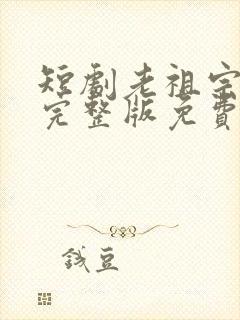 短劇老祖宗
完整版免費
錢豆